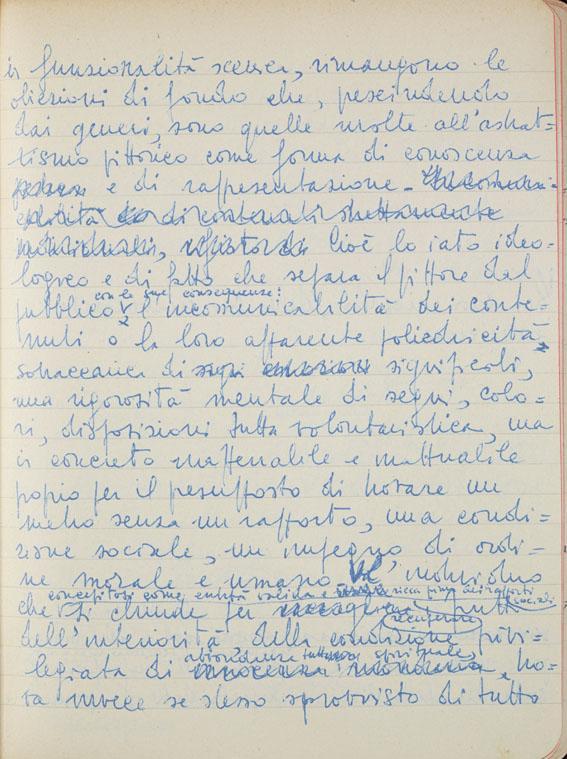 in funzionalità scenica, rimangono le
obiezioni di fondo che, prescindendo
dai generi, sono quelle rivolte all'astrat=
tismo pittorico come forma di conoscenza
e di rappresentazione.
Cioè lo iato ideo=
logico e di fatto che separa il pittore dal
con le sue conseguenze:
pubblico l'incomunicabilità dei conte=
nuti o la loro apparente poliedricità,
di significati,
una rigorosità mentale di segni, colo=
ri, disposizioni tutta volontaristica, ma
in concreto inafferrabile e inattuabile
proprio per il presupposto di trovare un
senza un rapporto, una condi=
zione sociale, un impegno di ordi=
ne morale e umano. L'individuo
concepitosi come entità unica e ricca prima dei rapporti sociali
che si chiude per
recuperare
dell'interiorità della condizione privi=
abbondanza spirituale,
legiata di tro=
va invece se stesso sprovvisto di tutto